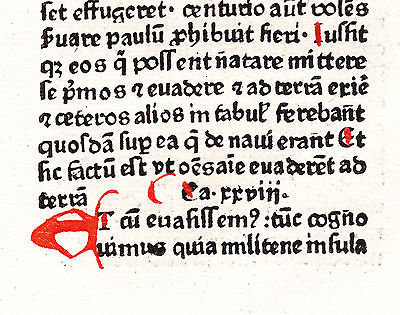 set effugeret· centurio aūt volēs
ẜuare paulū ꝓhibuit fieri· Iussit
qꝫ eos q̄ possent natare mittere
se p̄mos ⁊ euadere ⁊ ad terrā exire
⁊ ceteros alios in tabul' ferebāt
quosdā sup ea q̄ de naui erant Et
sic factū est vt oēs aīe euaderēt ad
terrā Ca· xxviij·
AT cū euasissemꝰ: tūc cogno
uimus quia militene insula